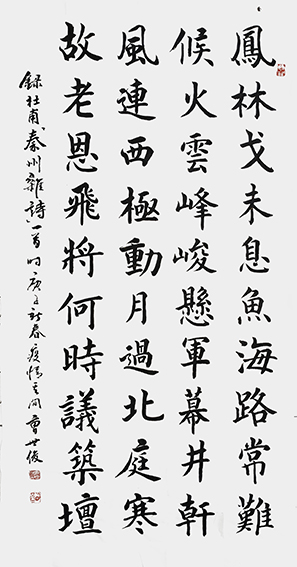 鳳林戈未息魚海路常難
候火雲峰峻懸軍幕井軒
風連西極動月過北庭寒
故老思飛將何時議築壇
錄杜甫秦州雜詩一首時庚子新春疫情之間曹世俊